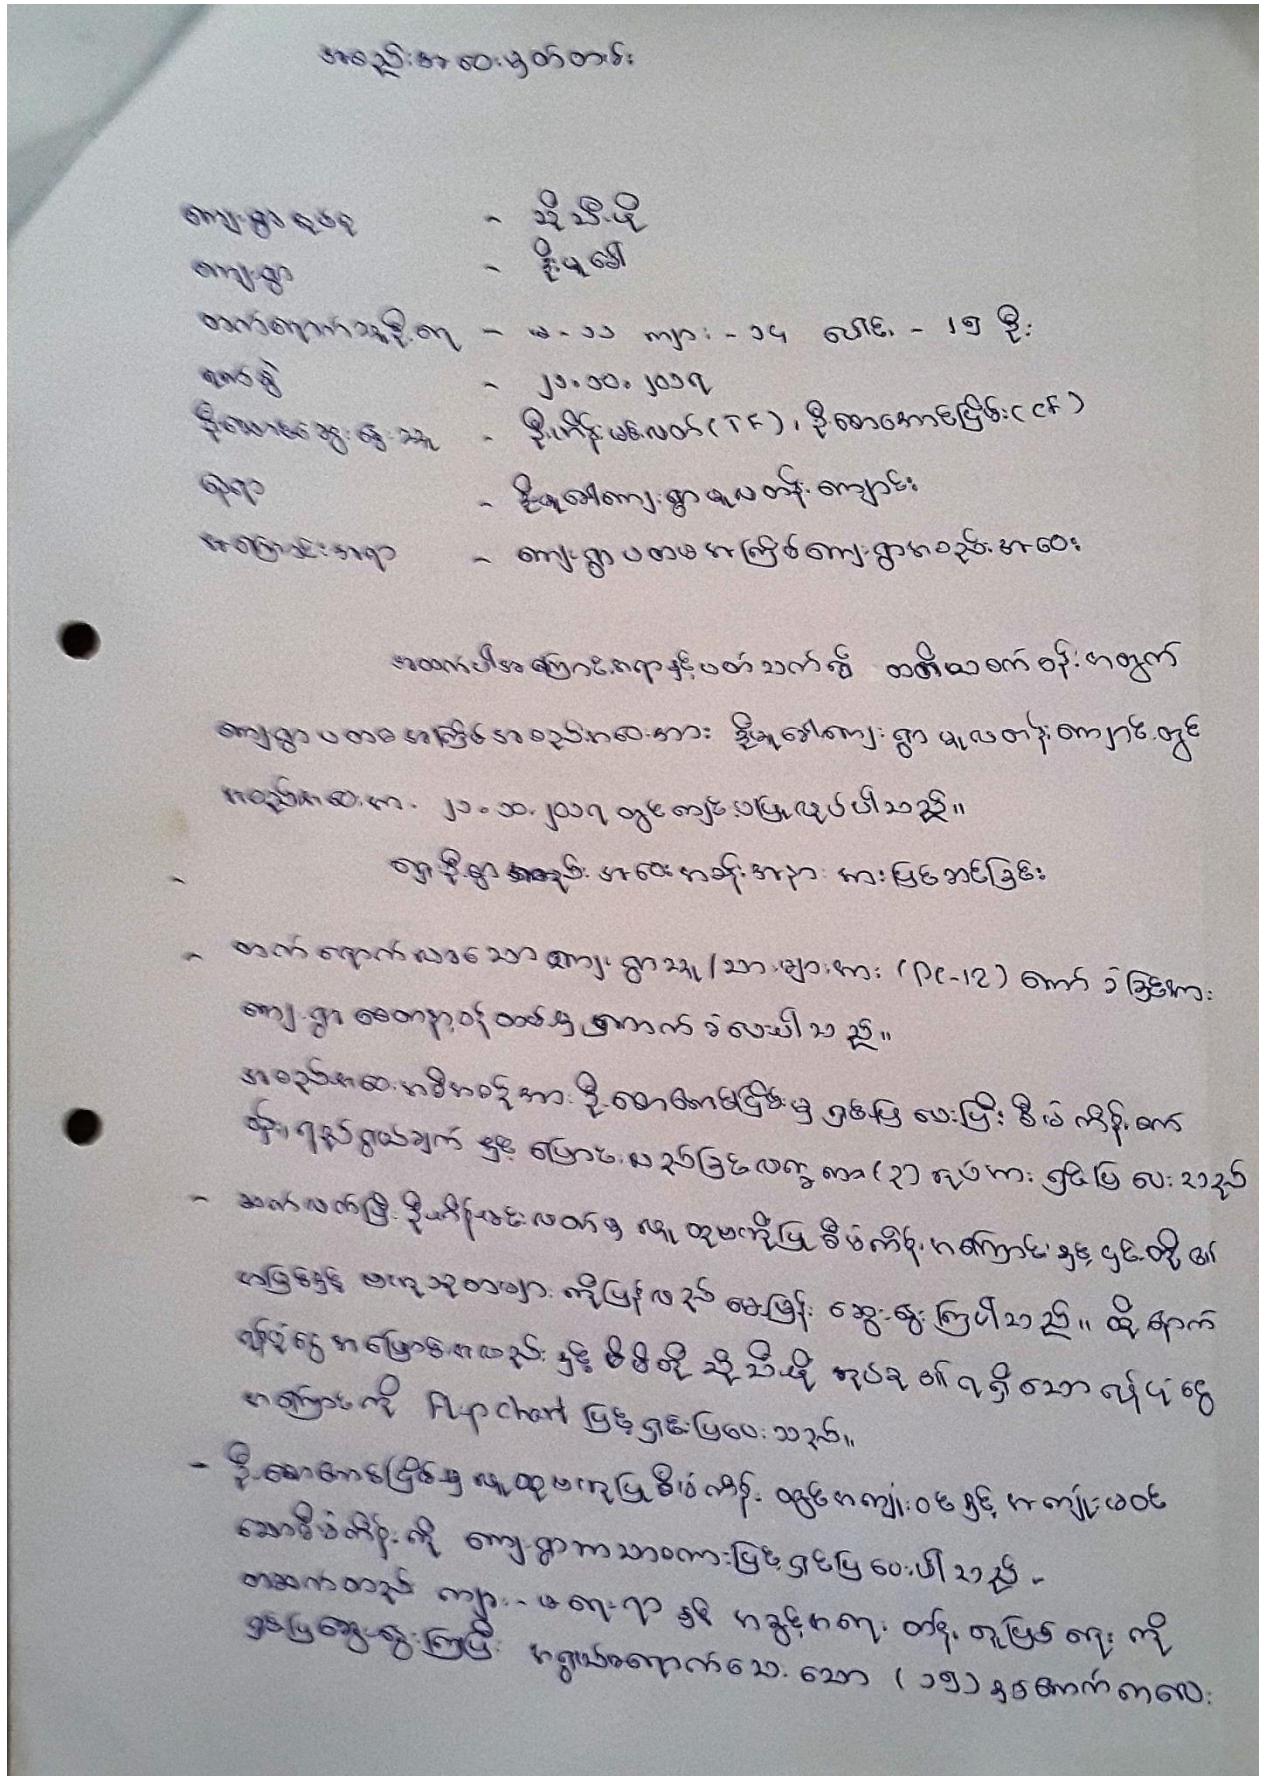 အစည်းအဝေးမှတ်တမ်း
ကျေးရွာအုပ်စု - သို့သီးဖို
ကျေးရွာ - ခိုးဖူခေါ်
တက်ရောက်သူဦးရေ - မ - ၁၁ ကျား - ၁၄ ပေါင်း - ၂၅ ဦး
ရက်စွဲ - ၂၁.၁၀.၂၀၁၇
ဦးဆောင်ဆွေးနွေးသူ - ဦးဟိန်းမင်းလတ် (TF) ၊ ဦးစောအောင်ငြိမ်း (CF)
နေရာ - ခိုးဖူခေါ်ကျေးရွာမူလတန်းကျောင်း
အကြောင်းအရာ - ကျေးရွာပထမအကြိမ်ကျေးရွာအစည်းအဝေး
အထက်ပါအကြောင်းအရာနှင့်ပတ်သက်၍ တတိယစက်ဝန်းအတွက်
ကျေးရွာပထမအကြိမ်အစည်းအဝေးအား ခိုးဖူခေါ်ကျေးရွာမူလတန်းကျောင်းတွင်
အစည်းအဝေးအား ၂၁.၁၀.၂၀၁၇ တွင်ကျင်းပပြုလုပ်ပါသည်။
- ရှေးဦးစွာ အစည်းအဝေးအခမ်းအနားအားပြင်ဆင်ခြင်း
- တက်ရောက်လာသော ကျေးရွာသူ/သားများအား (PC-12) ကော်ခံခြင်းအား
ကျေးရွာစေတနာ့ဝန်ထမ်းမှကောက်ခံပေးပါသည်။
အစည်းအဝေးအစီအစဉ်အား ဦးစောအောင်ငြိမ်းမှ ရှင်းပြပေးပြီး စီမံကိန်းစက်
ဝန်း၊ ရည်ရွယ်ချက် နှင့် ပြောင်းလဲခြင်းလက္ခဏာ (၃) ရပ်အား ရှင်းပြပေးသည်
- ဆက်လက်ပြီး ဦးဟိန်းမင်းလတ်မှ လူထုဗဟိုပြုစီမံကိန်းအကြောင်းနှင့် ၎င်းတို့၏
အခြေခံမူ ကိုပြန်လည်မေးမြန်း ဆွေးနွေးကြပါသည်။ ထို့နောက်
လုပ်ငန်း နှင့် မိမိတို့ သို့သီးဖို အုပ်စု၏ ရရှိသောလုပ်ငန်းငွေ
အကြောင်းကို Flip chart ဖြင့်ရှင်းပြပေးသည်။
- ဦးစောအောင်ငြိမ်းမှ လူထုဗဟိုပြုစီမံကိန်းတွင်အကျုံးဝင်နှင့် အကျုံးမဝင်
သောစီမံကိန်းကို ကျေးရွာဘာသာစကားဖြင့်ရှင်းပြပေးပါသည် -
တဆက်တည် ကျား-မရေးရာ နှင့် အခွင့်အရေး တန်းတူဖြစ်ရေး ကို
ရှင်းပြဆွေးနွေးကြပြီး အရွယ်မရောက်သေးသော (၁၅) နှစ်အောက်ကလေး